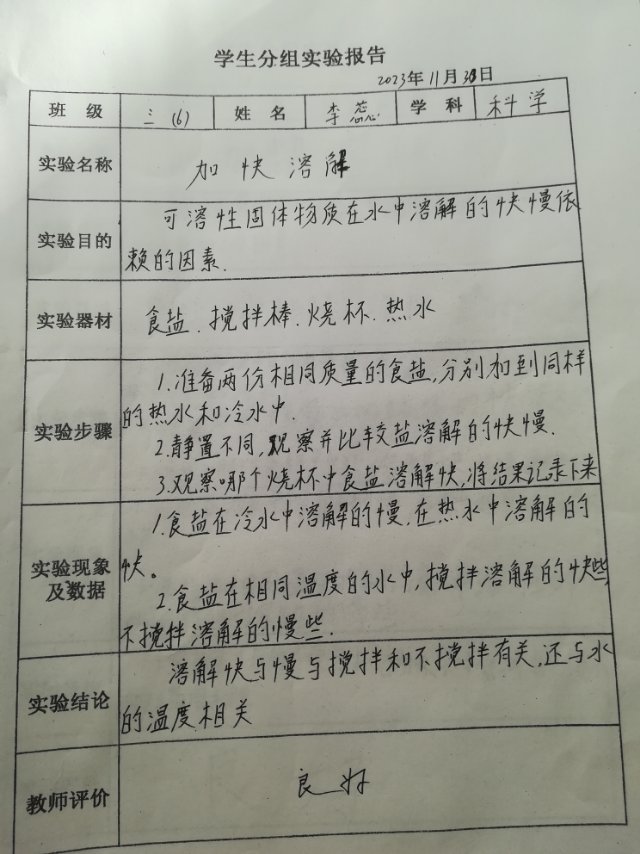 学生分组实验报告
2023年11月30日
班级 三(6) 姓名 李蕊 学科 科学
实验名称 加快溶解
实验目的 可溶性固体物质在水中溶解的快慢依
赖的因素.
实验器材 食盐.搅拌棒.烧杯.热水
实验步骤
1.准备两份相同质量的食盐,分别加到同样
的热水和冷水中.
2.静置不同,观察并比较盐溶解的快慢.
3.观察哪个烧杯中食盐溶解快,将结果记录下来
实验现象
及数据
1.食盐在冷水中溶解的慢,在热水中溶解的
快。
2.食盐在相同温度的水中,搅拌溶解的快些,
不搅拌溶解的慢些.
实验结论
溶解快与慢与搅拌和不搅拌有关,还与水
的温度相关
教师评价 良好